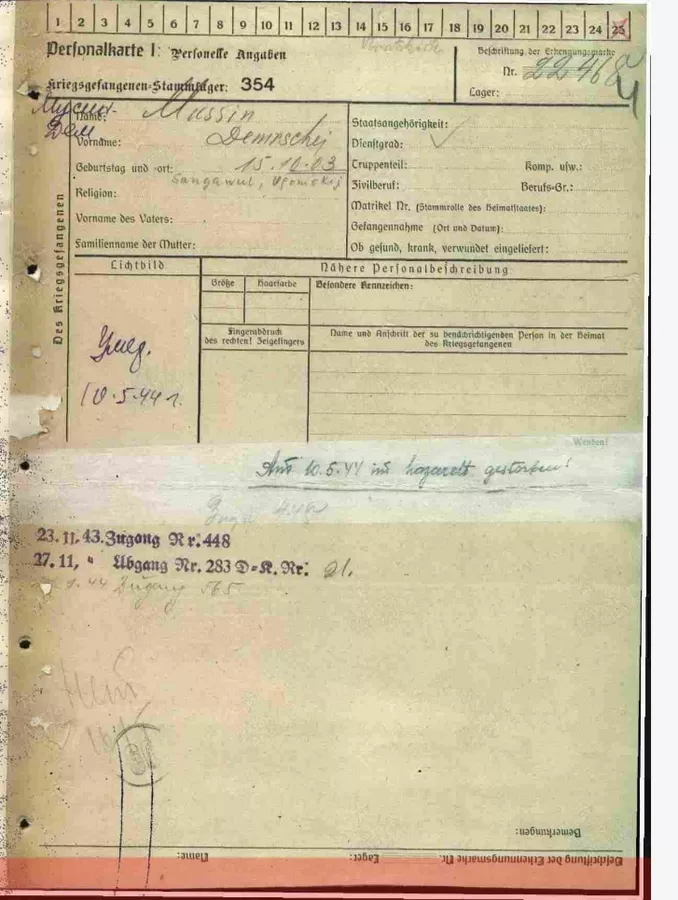 1 2 3 4 5 6 7 8 9 10 11 12 13 14 15 16 17 18 19 20 21 22 23 24 25
Personalkarte I: Personelle Angaben
Beschriftung der Erkennungsmarke
Nr. 22468
Kriegsgefangenen-Stammlager: 354
Lager:
Мусин
Дем
Name: Mussin
Vorname: Demnschej
Geburtstag und -ort: 15.10.03
Religion:
Vorname des Vaters:
Familienname der Mutter:
Staatsangehörigkeit:
Dienstgrad:
Truppenteil: Komp. usw.:
Zivilberuf: Berufs-Gr.:
Matrikel Nr. (Stammrolle des Heimatstaates):
Gefangennahme (Ort und Datum):
Ob gesund, krank, verwundet eingeliefert:
Des Kriegsgefangenen
Lichtbild
Nähere Personalbeschreibung
Größe Haarfarbe Besondere Kennzeichen:
Fingerabdruck
des rechten! Zeigefingers
Name und Anschrift der zu benachrichtigenden Person in der Heimat
des Kriegsgefangenen
Умер.
10.5.44 г.
Wenden!
Am 10.5.44 im Lazarett gestorben!
23.11.43. Zugang Nr: 448
27.11, " Abgang Nr. 283 D=K. Nr: 21.
44 Zugang 565
Bemerkungen:
Name: Lager: Beschriftung der Erkennungsmarke Nr.